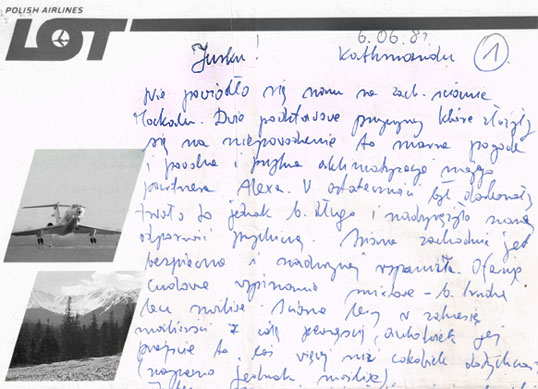 POLISH AIRLINES
LOT
6.06.81
Jurku! Kathmandu 1
Nie powiodło się nam na zach. ścianie
Makalu. Dwie podstawowe przyczyny które złożyły
się na niepowodzenie to marna pogoda
i powolna i późna aklimatyzacja mojego
partnera Alexa. W ostateczności był doskonały
trwało to jednak b. długo i nadwyrężyło naszą
odporność psychiczną. Ściana zachodnia jest
bezpieczna i nadzwyczaj wspaniała. Oferuje
cudowne wspinanie mixtowe - b. trudne
lecz możliwe. Ściana leży w zakresie
możliwości z
to coś więcej niż cokolwiek dotychczas
(naprawdę jednak możliwe)